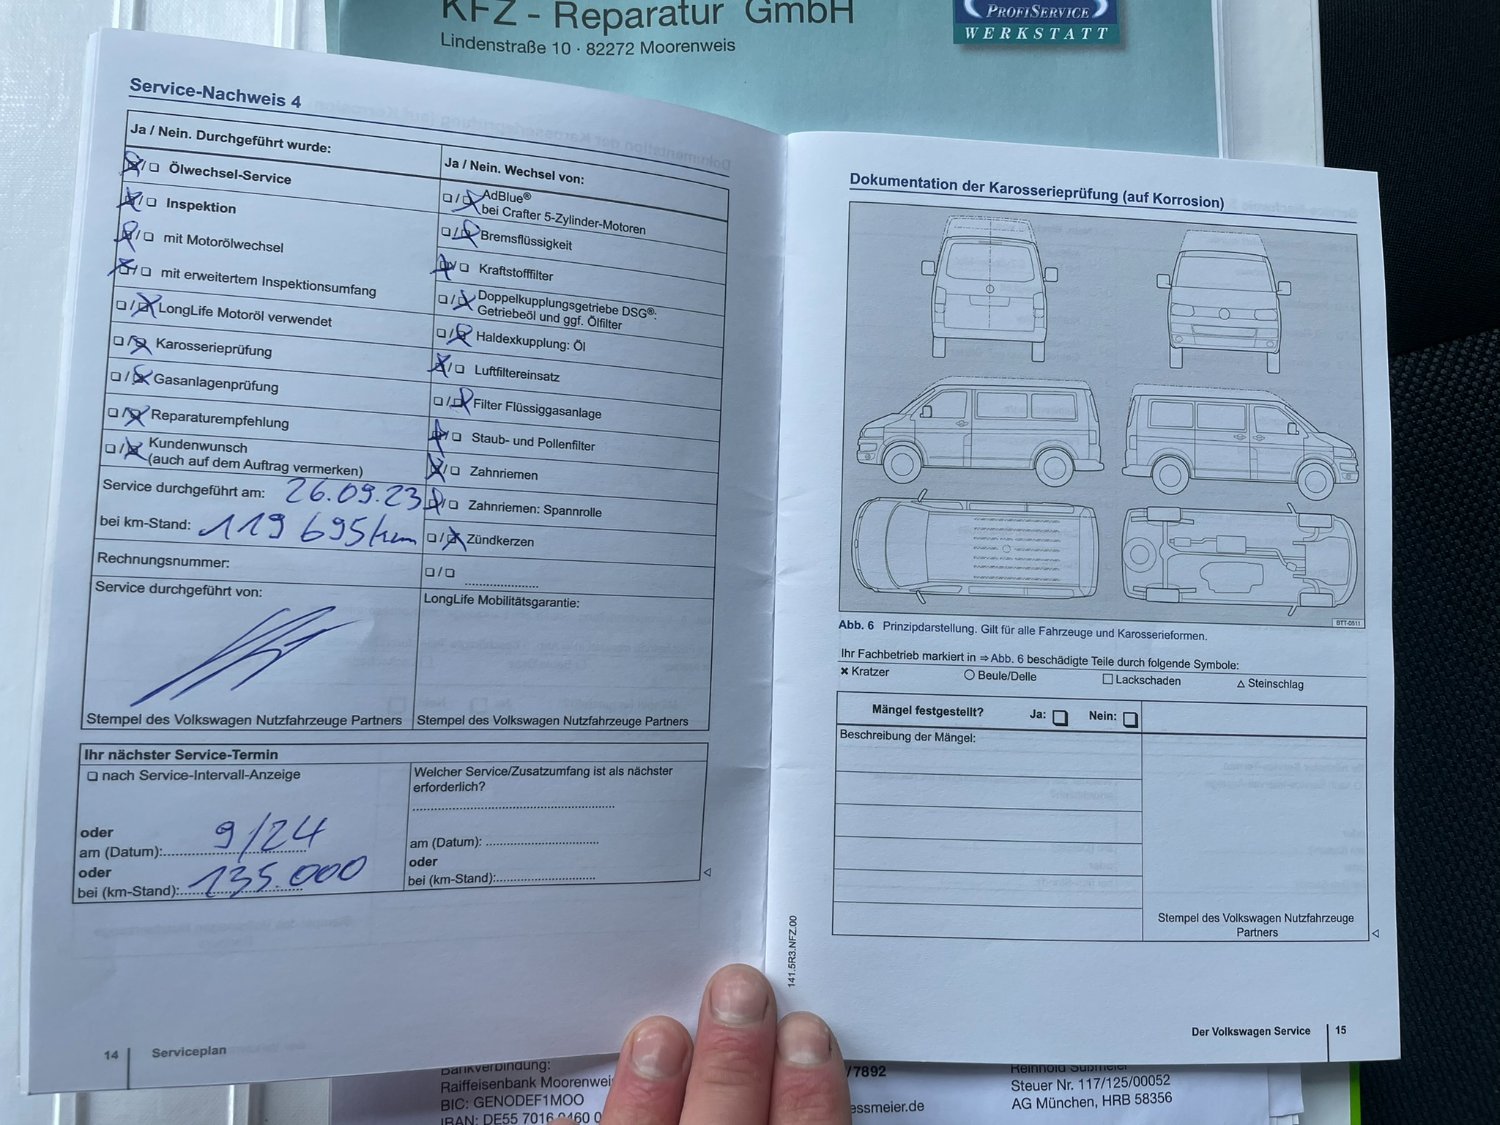 KFZ - Reparatur GmbH
Lindenstraße 10 · 82272 Moorenweis
PROFISERVICE
WERKSTATT
Service-Nachweis 4
Ja / Nein. Durchgeführt wurde:
Ölwechsel-Service
Inspektion
mit Motorölwechsel
mit erweitertem Inspektionsumfang
LongLife Motoröl verwendet
Karosserieprüfung
Gasanlagenprüfung
Reparaturempfehlung
Kundenwunsch
(auch auf dem Auftrag vermerken)
Service durchgeführt am: 26.09.23
bei km-Stand: 119 695 km
Rechnungsnummer:
Service durchgeführt von:
Stempel des Volkswagen Nutzfahrzeuge Partners
Ja / Nein. Wechsel von:
AdBlue®
bei Crafter 5-Zylinder-Motoren
Bremsflüssigkeit
Kraftstofffilter
Doppelkupplungsgetriebe DSG®:
Getriebeöl und ggf. Ölfilter
Haldexkupplung: Öl
Luftfiltereinsatz
Filter Flüssiggasanlage
Staub- und Pollenfilter
Zahnriemen
Zahnriemen: Spannrolle
Zündkerzen
LongLife Mobilitätsgarantie:
Stempel des Volkswagen Nutzfahrzeuge Partners
Ihr nächster Service-Termin
nach Service-Intervall-Anzeige
oder
am (Datum): 9/24
oder
bei (km-Stand): 135.000
Welcher Service/Zusatzumfang ist als nächster
erforderlich?
am (Datum):
oder
bei (km-Stand):
14 Serviceplan
Dokumentation der Karosserieprüfung (auf Korrosion)
BTT-0511
Abb. 6 Prinzipdarstellung. Gilt für alle Fahrzeuge und Karosserieformen.
Ihr Fachbetrieb markiert in ⇒ Abb. 6 beschädigte Teile durch folgende Symbole:
Kratzer Beule/Delle Lackschaden Steinschlag
Mängel festgestellt? Ja: Nein:
Beschreibung der Mängel:
Stempel des Volkswagen Nutzfahrzeuge
Partners
141.5R3.NFZ.00
Der Volkswagen Service 15
Bankverbindung:
Raiffeisenbank Moorenweis
BIC: GENODEF1MOO
IBAN: DE55 7016 0460 0
/7892
essmeier.de
Reinhold
Steuer Nr. 117/125/00052
AG München, HRB 58356